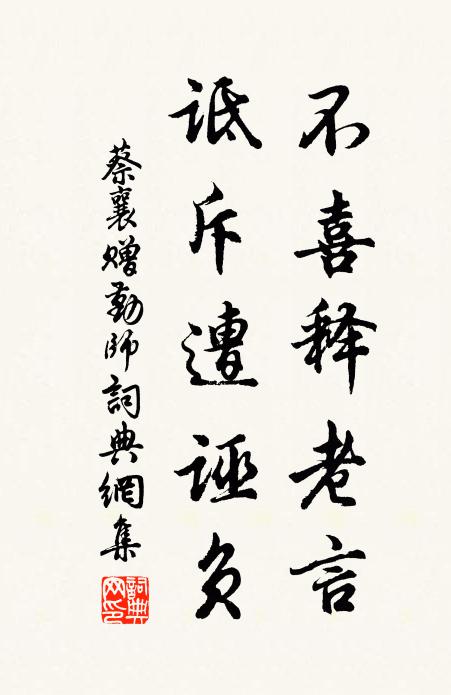 不喜释老言
诋斥遭诬负
蔡襄赠勤师詞典網集
詞典网印